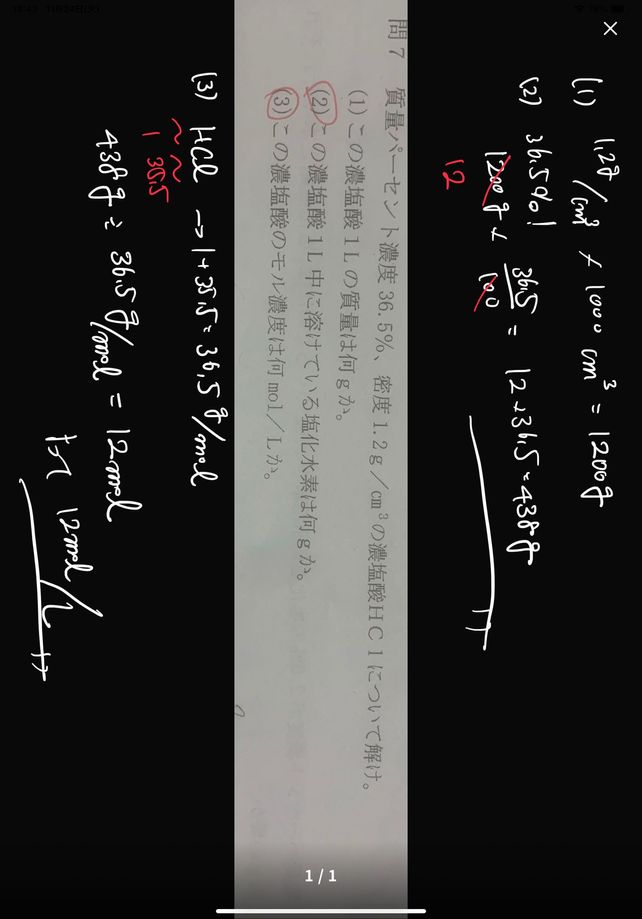 (1) 1.2g/cm³ × 1000 cm³ = 1200g
(2) 36.5%!
1200g × 36.5/100 = 12×36.5=438g
12
問7 質量パーセント濃度36.5%、密度1.2g/cm³の濃塩酸HClについて解け。
(1)この濃塩酸1Lの質量は何gか。
(2)この濃塩酸1L中に溶けている塩化水素は何gか。
(3)この濃塩酸のモル濃度は何mol/Lか。
(3) HCl → 1+35.5=36.5g/mol
1 35.5
438g ÷ 36.5g/mol = 12mol
よって 12mol/L
1/1